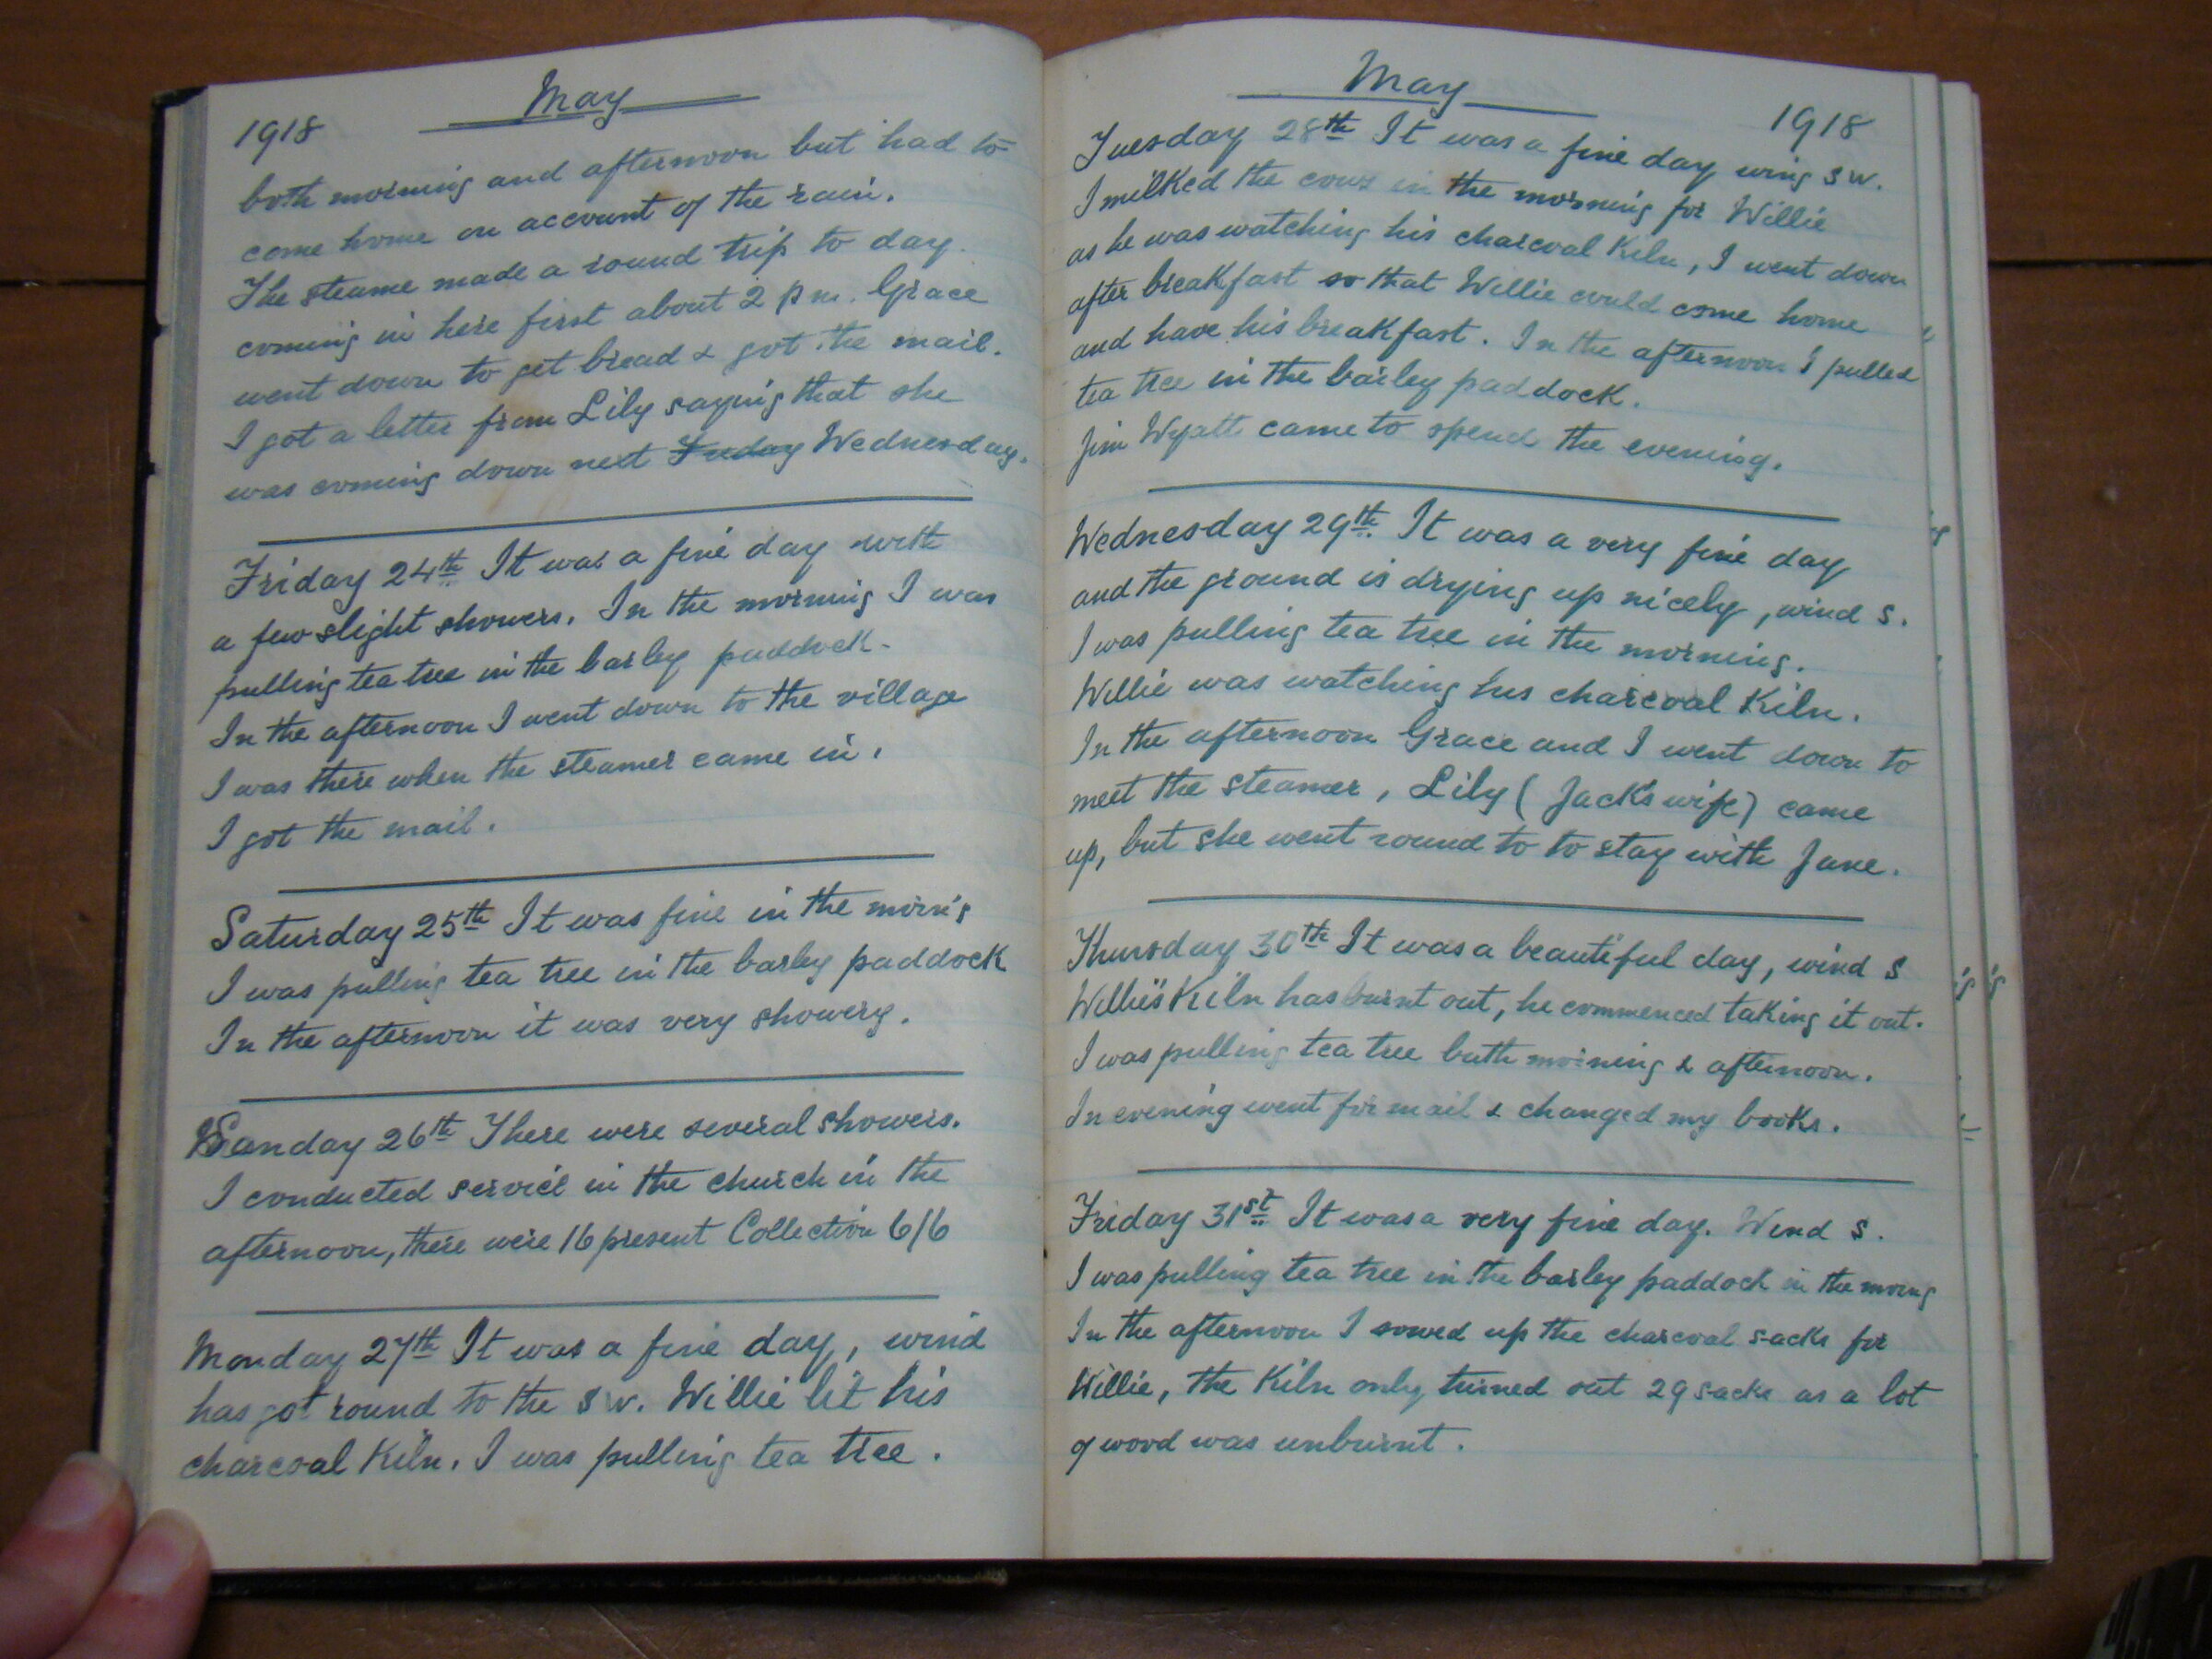 May
1918
both morning and afternoon but had to
come home on account of the rain.
The steame made a round trip to day.
coming in here first about 2 p m. Grace
went down to get bread & got the mail.
I got a letter from Lily saying that she
was coming down next Friday Wednesday.
Friday 24th It was a fine day with
a few slight showers. In the morning I was
pulling tea tree in the barley paddock.
In the afternoon I went down to the village
I was there when the steamer came in.
I got the mail.
Saturday 25th It was fine in the morn'g
I was pulling tea tree in the barley paddock
In the afternoon it was very showery.
Sunday 26th There were several showers.
I conducted service in the church in the
afternoon, there were 16 present Collection 6/6
Monday 27th It was a fine day, wind
has got round to the S W. Willie lit his
charcoal Kiln. I was pulling tea tree.
May
1918
Tuesday 28th It was a fine day wing S W.
I milked the cows in the morning for Willie
as he was watching his charcoal Kiln, I went down
after breakfast so that Willie could come home
and have his breakfast. In the afternoon I pulled
tea tree in the barley paddock.
Jim Wyatt came to spend the evening.
Wednesday 29th. It was a very fine day
and the ground is drying up nicely, wind S.
I was pulling tea tree in the morning.
Willie was watching his charcoal Kiln.
In the afternoon Grace and I went down to
meet the steamer, Lily (Jack's wife) came
up, but she went round to to stay with Jane.
Thursday 30th It was a beautiful day, wind S
Willie's Kiln has burnt out, he commenced taking it out.
I was pulling tea tree both morning & afternoon.
In evening went for mail & changed my books.
Friday 31st It was a very fine day. Wind S.
I was pulling tea tree in the barley paddock in the morng
In the afternoon I sowed up the charcoal sacks for
Willie, the Kiln only turned out 29 sacks as a lot
of wood was unburnt.